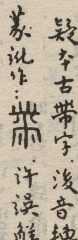 疑本古帶字後音
篆訛作 許誤解